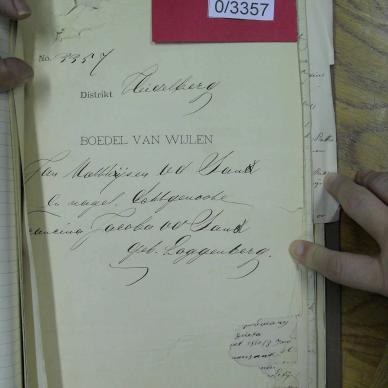 0/3357
No. 3357
Distrikt Heidelberg
BOEDEL VAN WIJLEN
Jan Matthijsen v d Sandt
En nagel. Echtgenoote
Francina Jacoba v d Sandt
geb. Loggenberg.